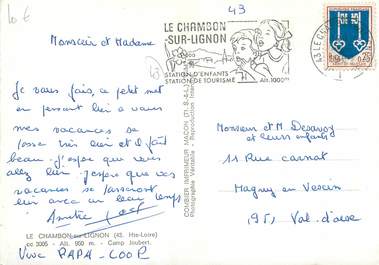 10€
43
LE CHAMBON
-SUR-LIGNON
STATION D'ENFANTS
STATION DE TOURISME
Alt. 1000m
43 LE CHA
Monsieur et Madame
Je vous fais, ce petit mot
en pensant bien a vous
mes vacances se
passe très bien et il fait
beau. j'espere que vous
allez bien. j'espere que vos
vacances se passeront
bien avec un beau temps
LE CHAMBON-sur-LIGNON (43. Hte-Loire)
cc 3005 - Alt. 960 m. - Camp Joubert.
Vive PAPA-COOP
COMBIER IMPRIMEUR MACON (71. S.-&-L.)
Photographie Véritable - Reproduction Inter
Monsieur et M
et leurs enfants
11 Rue carnot
Magny en Vexin
95, Val-d'oise